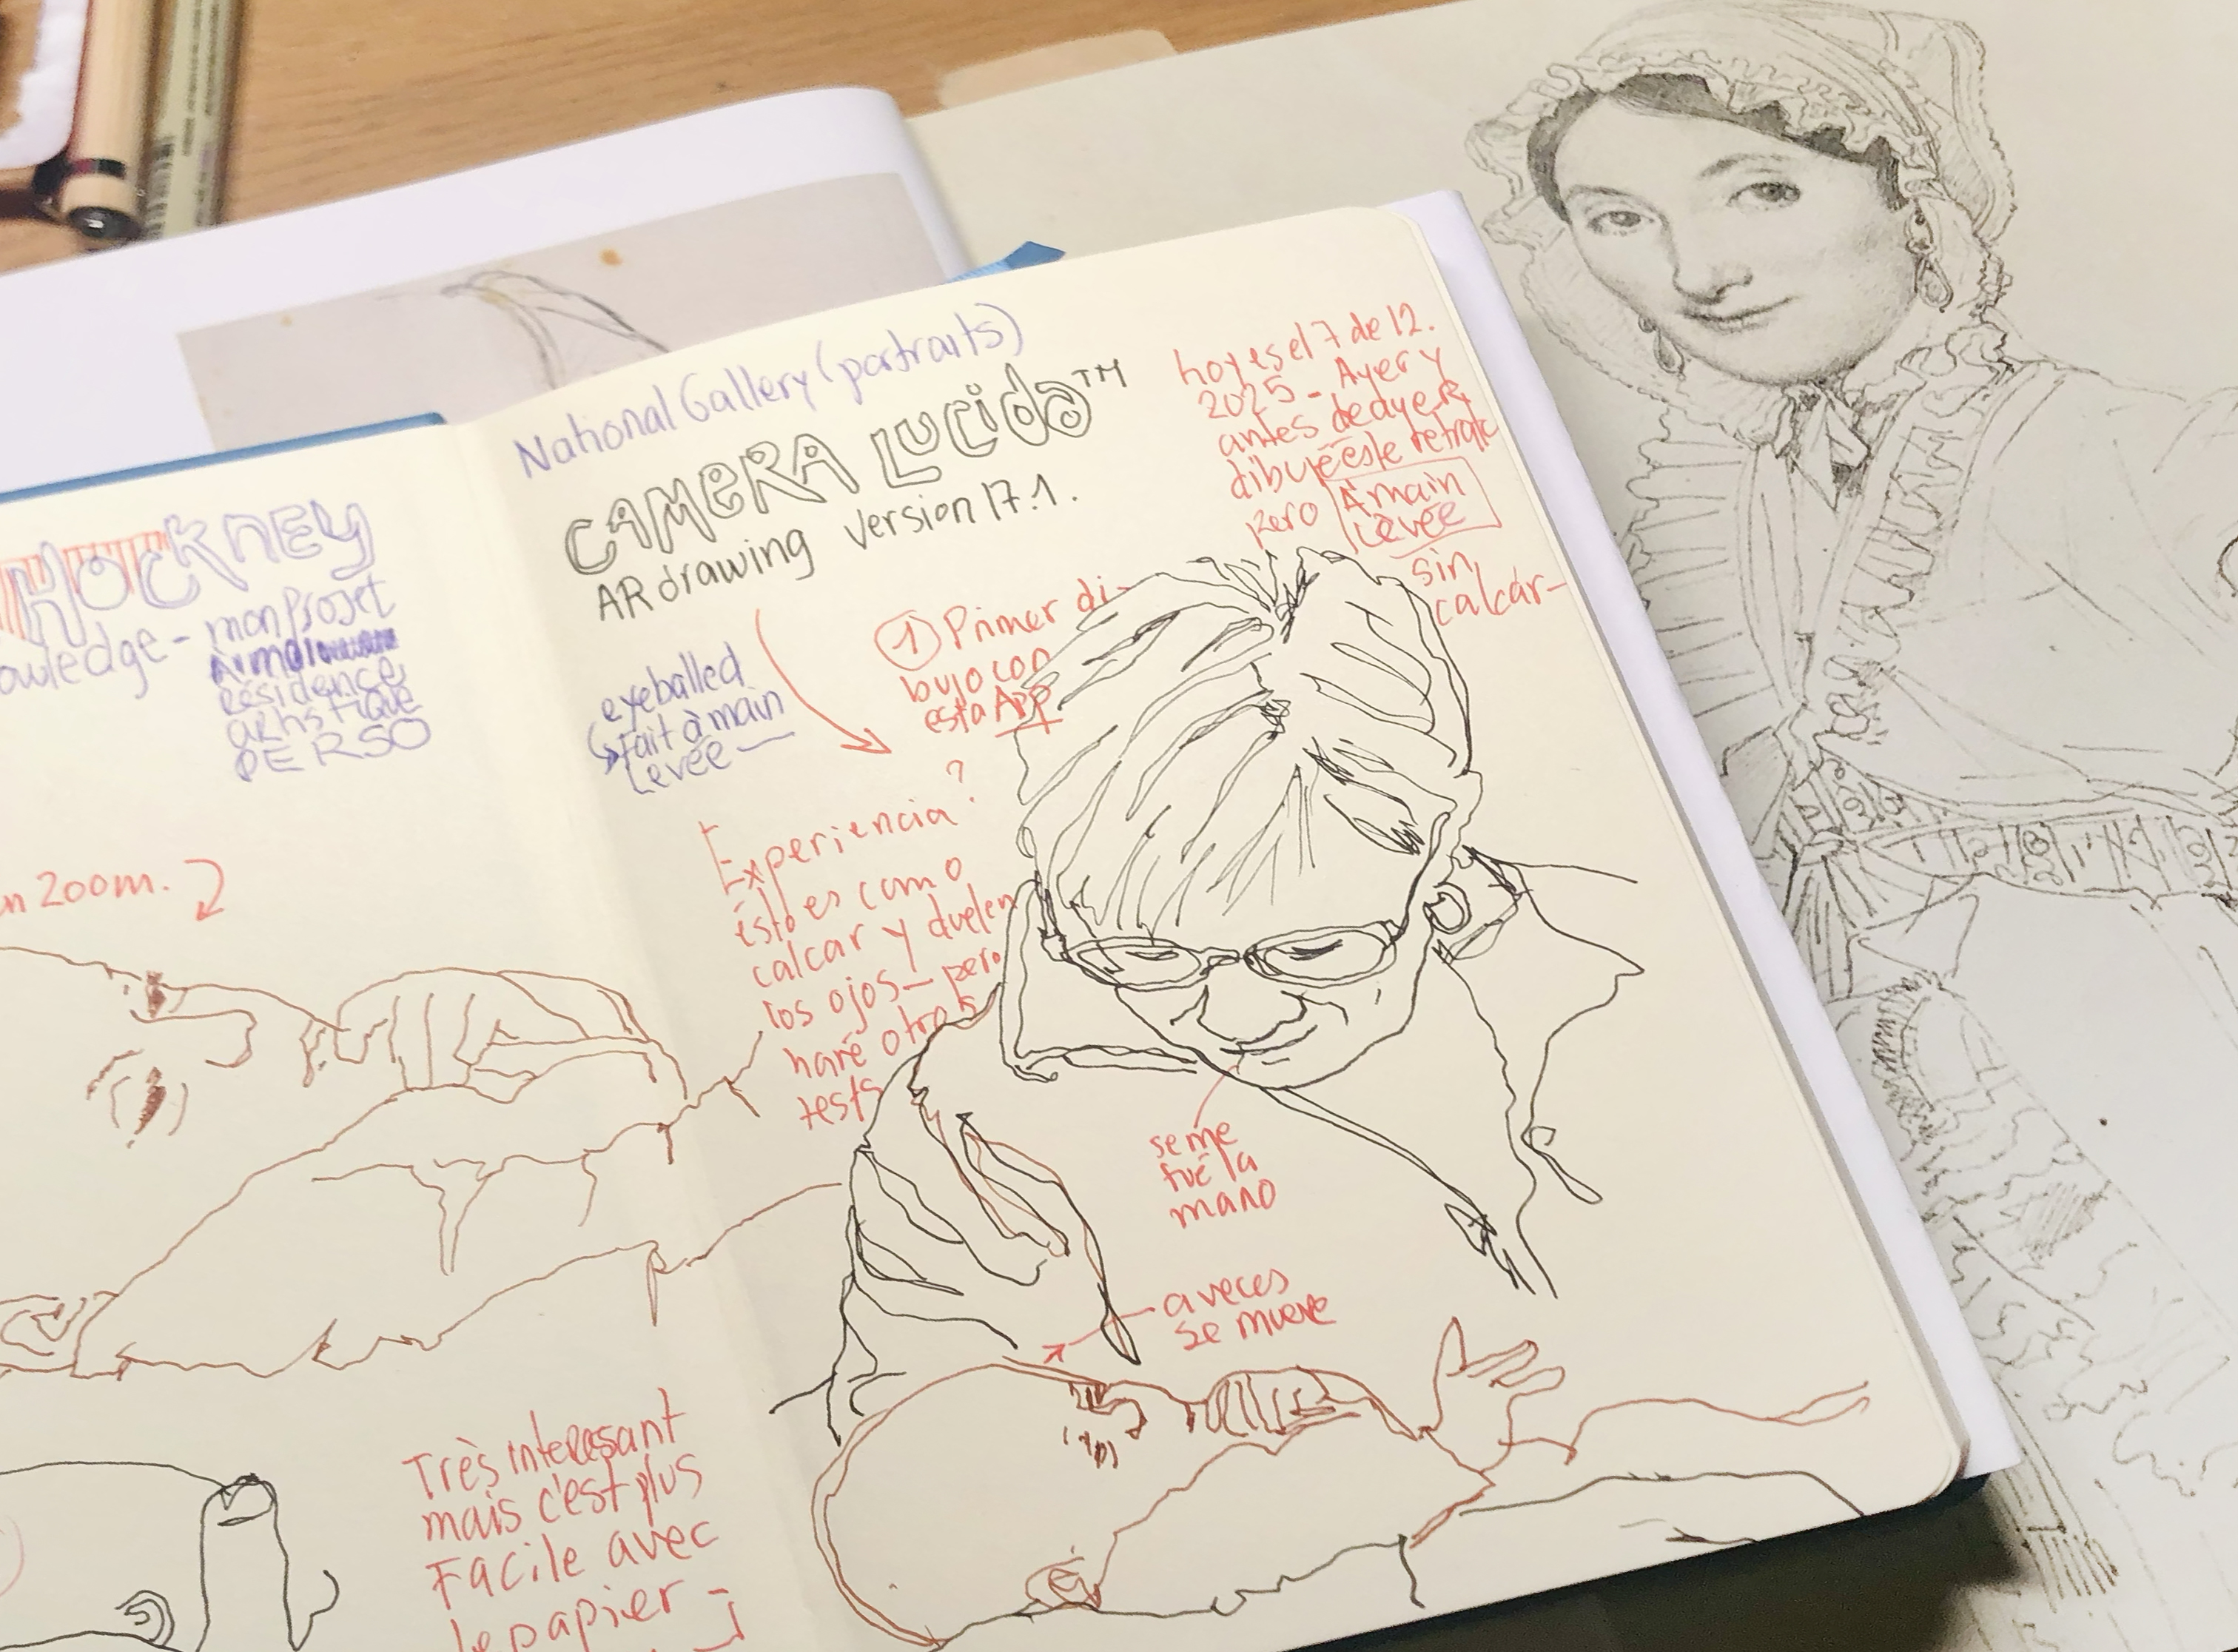 HOCKNEY
owledge - mon projet
résidence
artistique
PERSO
n zoom.
Très interesant
mais c'est plus
Facile avec
le papier -
National Gallery (portraits)
CAMERA LUCIDA™
AR drawing version 17.1.
eyeballed
fait à main
levée —
1 Primer di-
bujo con
esta App
Experiencia?
ésto es como
calcar y duelen
los ojos - pero
haré otros
tests
hoy es el 7 de 12.
2025 - Ayer y
antes de ayer
dibujé éste retrato
pero À main
Levée
sin
calcar -
se me
fué la
mano
a veces
se mueve